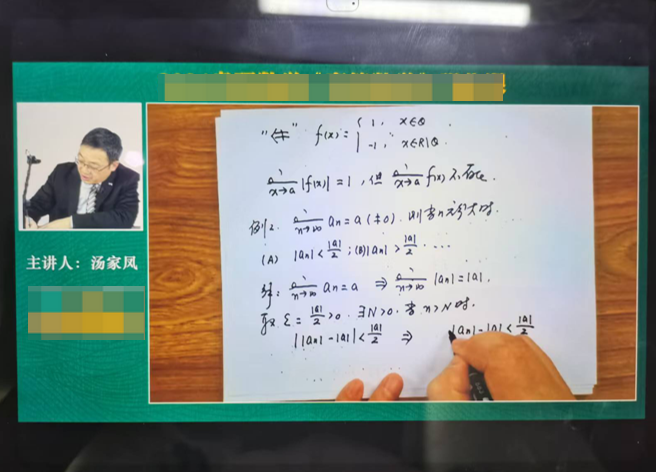 主讲人:汤家凤
"⇍" f(x) = { 1, x∈Q
-1, x∈R\Q.
lim x→a |f(x)| = 1, 但 lim x→a f(x) 不存在.
例2. lim n→∞ an = a (≠0). 则当n充分大时.
(A) |an| < |a|/2 ; (B) |an| > |a|/2 . ...
解: lim n→∞ an = a ⇒ lim n→∞ |an| = |a|.
取 ε = |a|/2 > 0. ∃N>0. 当 n>N 时.
||an| - |a|| < |a|/2 ⇒ |an| - |a| < |a|/2